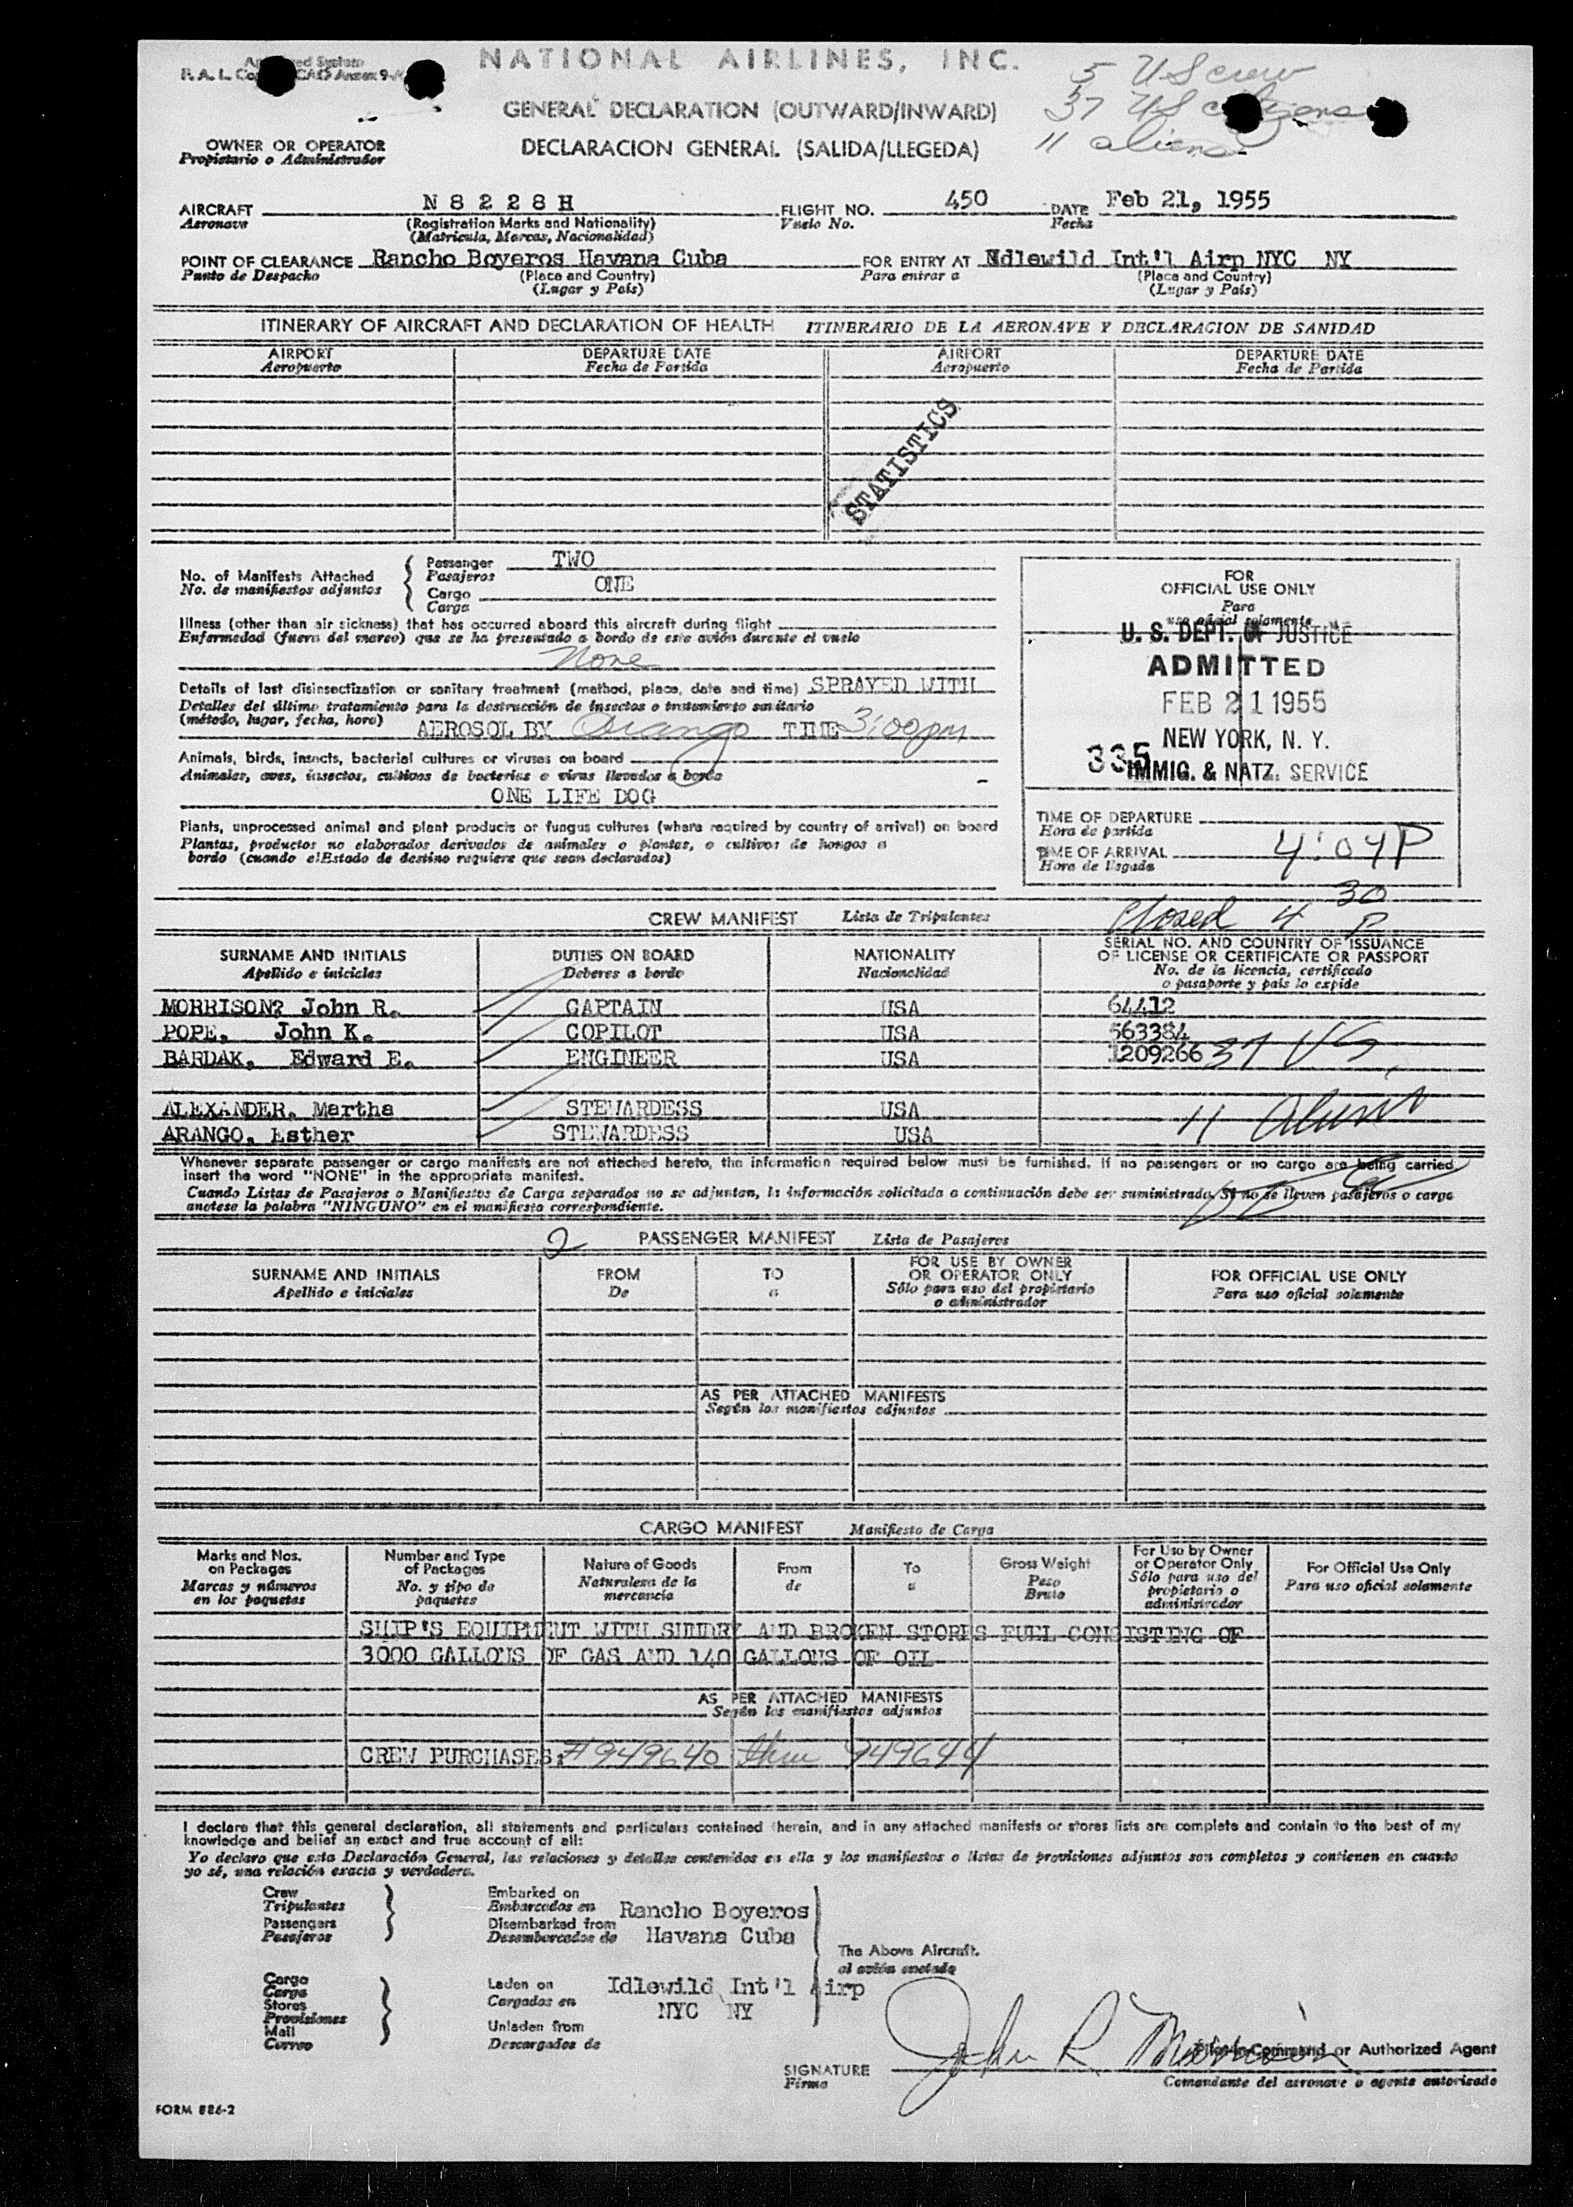 NATIONAL AIRLINES, INC.
5 US crew
37 US citizens
11 aliens
GENERAL DECLARATION (OUTWARD/INWARD)
OWNER OR OPERATOR
Propietario o Administrador
DECLARACION GENERAL (SALIDA/LLEGEDA)
AIRCRAFT N 8 2 2 8 H FLIGHT NO. 450 DATE Feb 21, 1955
Aeronave (Registration Marks and Nationality) Vuelo No. Fecha
(Matricula, Marcas, Nacionalidad)
POINT OF CLEARANCE Rancho Boyeros Havana Cuba FOR ENTRY AT Idlewild Int'l Airp NYC NY
Punto de Despacho (Place and Country) Para entrar a (Place and Country)
(Lugar y País) (Lugar y País)
ITINERARY OF AIRCRAFT AND DECLARATION OF HEALTH ITINERARIO DE LA AERONAVE Y DECLARACION DE SANIDAD
AIRPORT DEPARTURE DATE AIRPORT DEPARTURE DATE
Aeropuerto Fecha de Partida Aeropuerto Fecha de Partida
STATISTICS
No. of Manifests Attached Passenger TWO
No. de manifiestos adjuntos Pasajeros
Cargo ONE
Carga
Illness (other than air sickness) that has occurred aboard this aircraft during flight
Enfermedad (fuera del mareo) que se ha presentado a bordo de este avión durante el vuelo
None
Details of last disinsectization or sanitary treatment (method, place, date and time) SPRAYED WITH
Detalles del último tratamiento para la destrucción de insectos o tratamiento sanitario
(método, lugar, fecha, hora) AEROSOL BY Arango TIME 3:00pm
Animals, birds, insects, bacterial cultures or viruses on board
Animales, aves, insectos, cultivos de bacterias o virus llevados a bordo
ONE LIFE DOG
Plants, unprocessed animal and plant products or fungus cultures (where required by country of arrival) on board
Plantas, productos no elaborados derivados de animales o plantas, o cultivos de hongos a
bordo (cuando el Estado de destino requiere que sean declarados)
FOR
OFFICIAL USE ONLY
Para
uso oficial solamente
U. S. DEPT. OF JUSTICE
ADMITTED
FEB 21 1955
NEW YORK, N. Y.
335
IMMIG. & NATZ. SERVICE
TIME OF DEPARTURE
Hora de partida
TIME OF ARRIVAL 4:04P
Hora de llegada
Closed 4 30 P
CREW MANIFEST Lista de Tripulantes
SURNAME AND INITIALS DUTIES ON BOARD NATIONALITY SERIAL NO. AND COUNTRY OF ISSUANCE
OF LICENSE OR CERTIFICATE OR PASSPORT
Apellido e iniciales Deberes a bordo Nacionalidad No. de la licencia, certificado
o pasaporte y país lo expide
MORRISON? John R. CAPTAIN USA 64412
POPE, John K. COPILOT USA 563384
BARDAK, Edward E. ENGINEER USA 1209266 37 US
ALEXANDER, Martha STEWARDESS USA
ARANGO, Esther STEWARDESS USA
11 Aliens
Whenever separate passenger or cargo manifests are not attached hereto, the information required below must be furnished. If no passengers or no cargo are being carried
insert the word "NONE" in the appropriate manifest.
Cuando Listas de Pasajeros o Manifiestos de Carga separados no se adjuntan, la información solicitada a continuación debe ser suministrada. Si no se lleven pasajeros o carga
anotese la palabra "NINGUNO" en el manifiesto correspondiente.
2 PASSENGER MANIFEST Lista de Pasajeros
SURNAME AND INITIALS FROM TO FOR USE BY OWNER
OR OPERATOR ONLY FOR OFFICIAL USE ONLY
Apellido e iniciales De a Sólo para uso del propietario
o administrador Para uso oficial solamente
AS PER ATTACHED MANIFESTS
Según los manifiestos adjuntos
CARGO MANIFEST Manifiesto de Carga
Marks and Nos.
on Packages
Marcas y números
en los paquetes
Number and Type
of Packages
No. y tipo de
paquetes
Nature of Goods
Naturaleza de la
mercancía
From
de
To
a
Gross Weight
Peso
Bruto
For Use by Owner
or Operator Only
Sólo para uso del
propietario o
administrador
For Official Use Only
Para uso oficial solamente
SHIP'S EQUIPMENT WITH SUNDRY AND BROKEN STORES FUEL CONSISTING OF
3000 GALLONS OF GAS AND 140 GALLONS OF OIL
AS PER ATTACHED MANIFESTS
Según los manifiestos adjuntos
CREW PURCHASES: #949640 thru 949644
I declare that this general declaration, all statements and particulars contained therein, and in any attached manifests or stores lists are complete and contain to the best of my
knowledge and belief an exact and true account of all:
Yo declaro que esta Declaración General, las relaciones y detalles contenidos en ella y los manifiestos o listas de provisiones adjuntos son completos y contienen en cuanto
yo sé, una relación exacta y verdadera.
Crew
Tripulantes
Passengers
Pasajeros
Embarked on
Embarcados en Rancho Boyeros
Disembarked from
Desembarcados de Havana Cuba
The Above Aircraft.
al avión anotado
Cargo
Carga
Stores
Provisiones
Mail
Correo
Laden on
Cargados en
Idlewild Int'l Airp
NYC NY
Unladen from
Descargados de
John R Morrison
Pilot-in-Command or Authorized Agent
SIGNATURE
Firma
Comandante del aeronave o agente autorizado
FORM 886-2